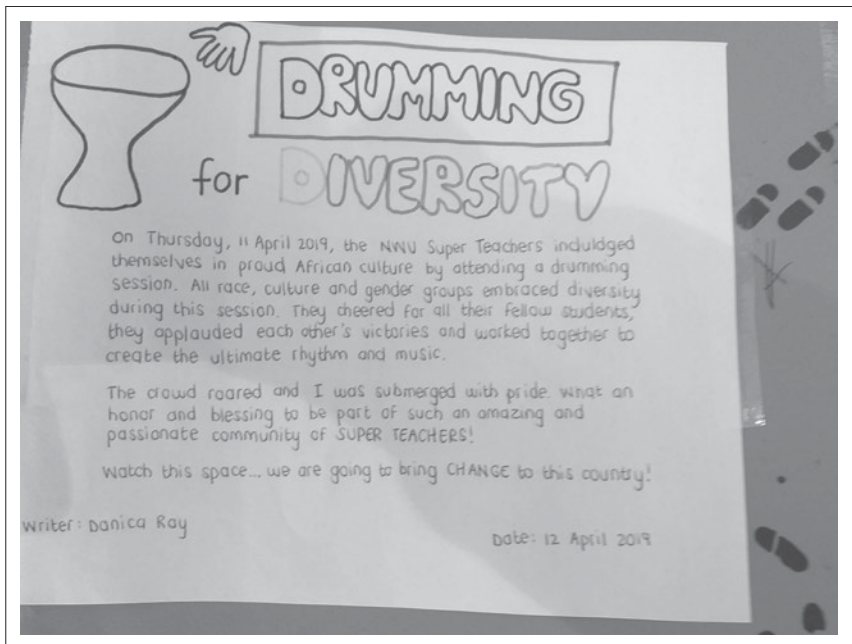 DRUMMING
for DIVERSITY
On Thursday, 11 April 2019, the NWU Super Teachers induldged
themselves in proud African culture by attending a drumming
session. All race, culture and gender groups embraced diversity
during this session. They cheered for all their fellow students,
they applauded each other's victories and worked together to
create the ultimate rhythm and music.
The crowd roared and I was submerged with pride. What an
honor and blessing to be part of such an amazing and
passionate community of SUPER TEACHERS!
Watch this space... we are going to bring CHANGE to this country!
Writer: Danica Ray
Date: 12 April 2019